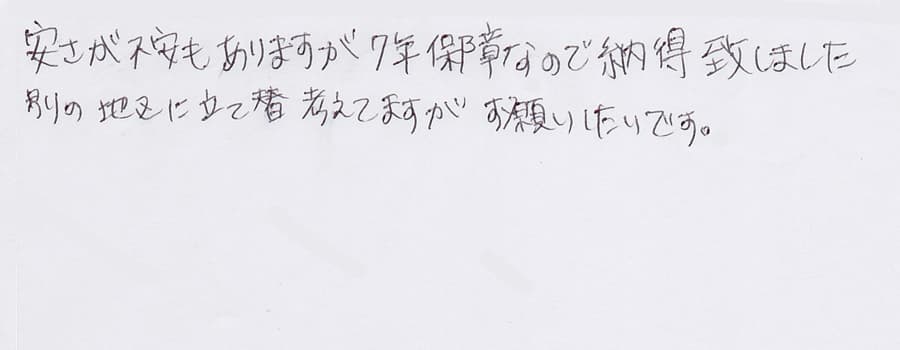 安さが不安もありますが7年保障なので納得致しました
別の地区に立て替考えてますがお願いしたいです。